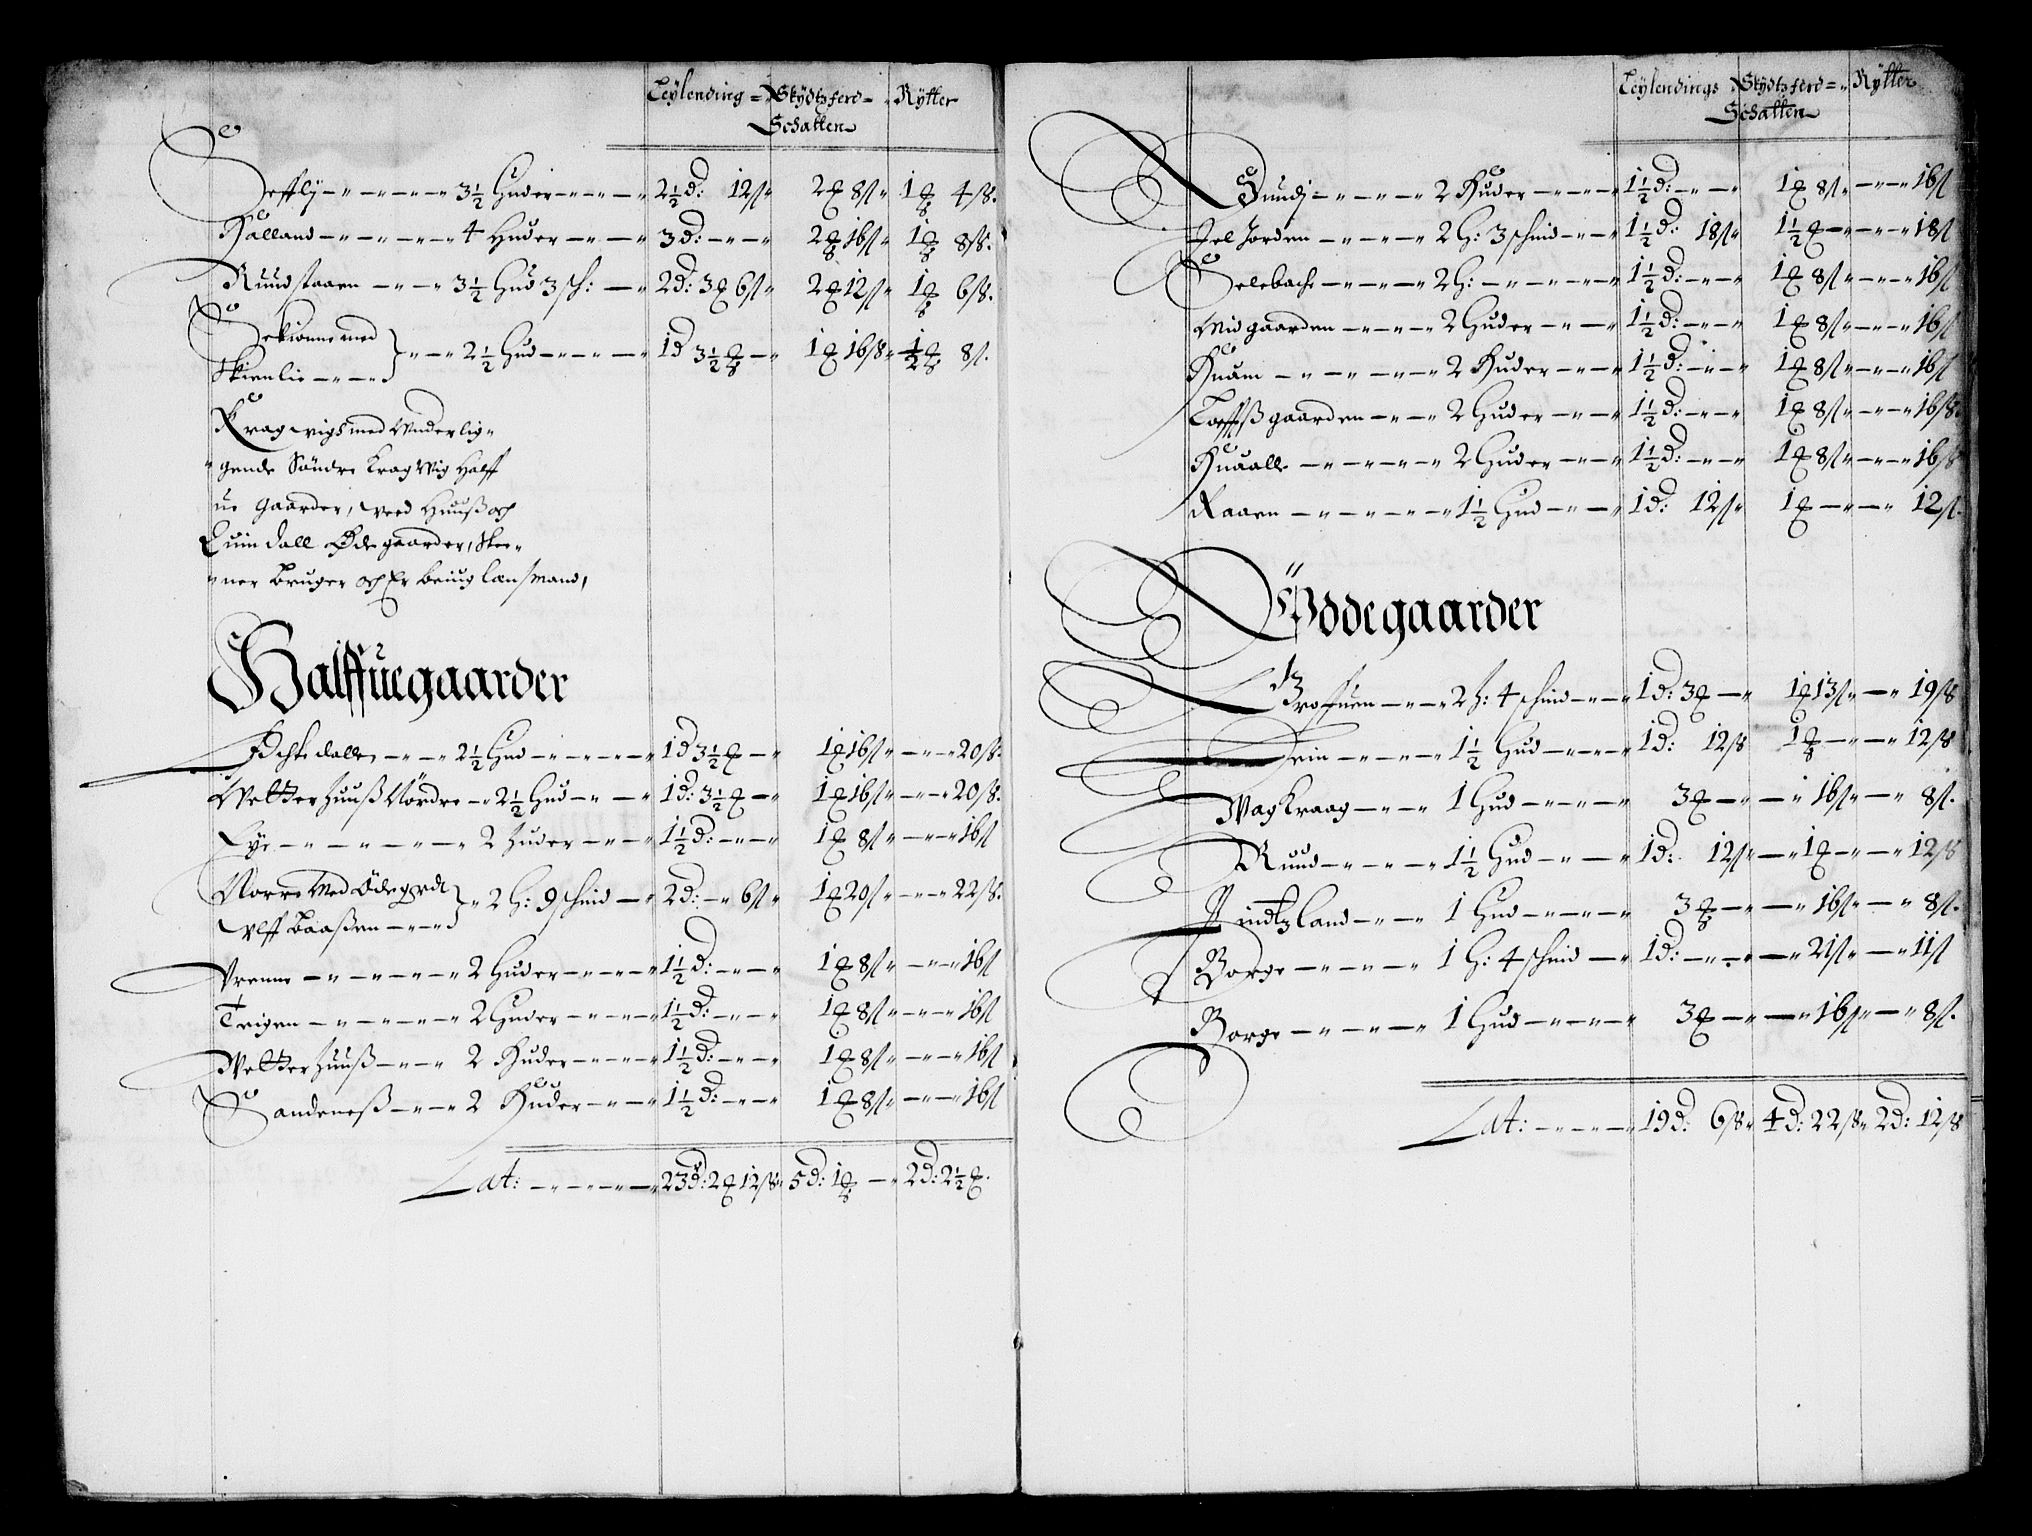 Leÿlending = Skÿdtzferd = Rÿtter
Schatten
Sefflÿ 3½ Huder 2½ d: 12 ß 2 8 ß 1 4 ß.
Kålland 4 Huder 3 d: 2 16 ß 1 8 ß.
Ruudstaaen 3½ Hud 3 sk: 2 d: 3 6 ß 2 12 ß 1 6 ß.
med 2½ Hud 1 d 3½ 1 16 ß ½ 8 ß.
Skienlie
Kragwigh med Vnderlig
gende Söndre Kragwig Halff
ue Gaarder, Huuß och
dall Øde gaarder,
ner Bruger och Er Lansmand,
Halffuegaarder
2½ Hud 1 d 3½ 1 16 ß 20 ß.
Wetterhuuß Nördre 2½ Hud 1 d: 3½ 1 16 ß 20 ß.
Lÿe 2 Huder 1½ d: 1 8 ß 16 ß
Norre Med Ödegrdt 2 H: 9 schind 2 d: 6 ß 1 20 ß 22 ß.
Vlff Baaßen
Vrenne 2 Huder 1½ d: 1 8 ß 16 ß
Teigen 2 Huder 1½ d: 1 8 ß 16 ß
Wetterhuuß 2 Huder 1½ d: 1 8 ß 16 ß
Sandeneß 2 Huder 1½ d: 1 8 ß 16 ß
Lat: 23 d: 2 12 ß 5 d: 1 2 d: 2½
Leÿlendings Skÿdtzferd = Rÿtter
Schatten
Sundj 2 Huder 1½ d: 1 8 ß 16 ß
Jel Jorden 2 H: 3 schind 1½ d: 18 ß 1½ 18 ß
Selebache 2 H: 1½ d: 1 8 ß 16 ß
Midgaarden 2 Huder 1½ d: 1 8 ß 16 ß
Kuåm 2 Huder 1½ d: 1 8 ß 16 ß
Tofftßgaarden 2 Huder 1½ d: 1 8 ß 16 ß
Kuaale 2 Huder 1½ d: 1 8 ß 16 ß
Raaen 1½ Hud 1 d: 12 ß 1 12 ß
Ödegaarder
Broffuen 2 h: 4 schind 1 d: 3 1 13 ß 19 ß
1½ Hud 1 d: 12 ß 1 12 ß
Wagkraag 1 Hud 3 16 ß 8 ß.
Ruud 1½ Hud 1 d: 12 ß 1 12 ß
Lindtzland 1 Hud 3 16 ß 8 ß.
Borge 1 H: 4 schind 1 d: 21 ß 11 ß
Borge 1 Hud 3 16 ß 8 ß.
Lat: 19 d: 6 ß 4 d: 22 ß 2 d: 12 ß